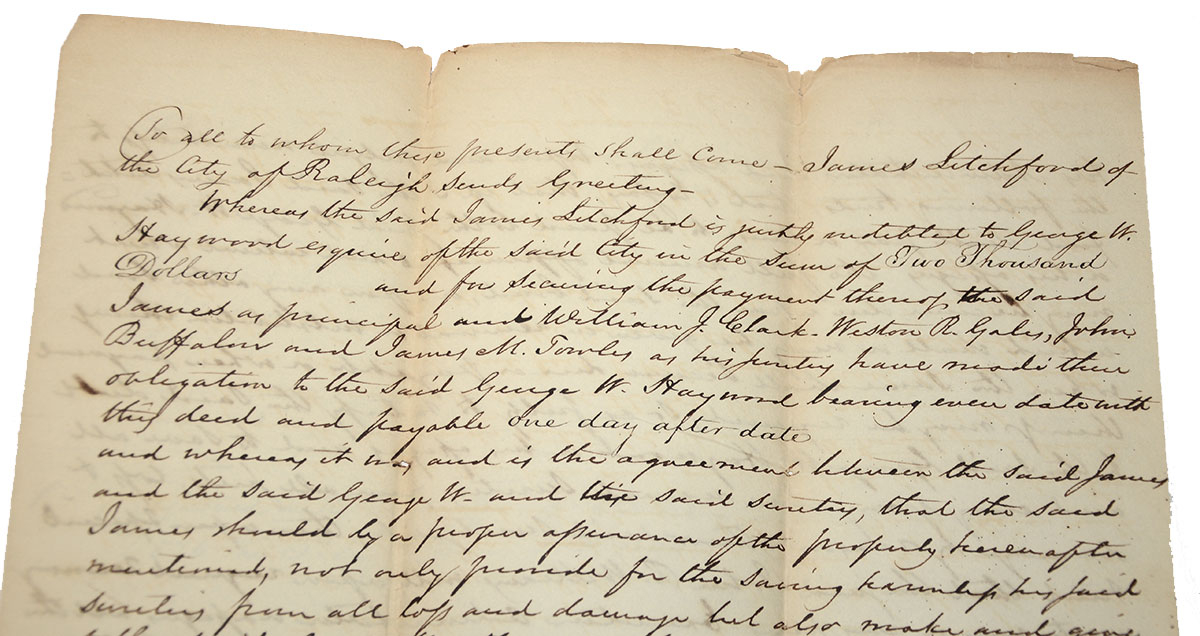 To all to whom these presents shall Come – James Litchford of
the City of Raleigh sends Greeting –
Whereas the said James Litchford is justly indebted to George W.
Haywood esquire of the said City in the sum of Two Thousand
Dollars and for securing the payment thereof, the said
James as principal and William J. Clark - Weston R. Gales, John
Buffalow and James M. Towles as his sureties have made their
obligation to the said George W. Haywood bearing even date with
this deed and payable one day after date
and whereas it was and is the agreement between the said James
and the said George W. and the said sureties, that the said
James should by a proper assurance of the property herein after
mentioned, not only provide for the saving harmless his said
sureties from all loss and damage but also make and give